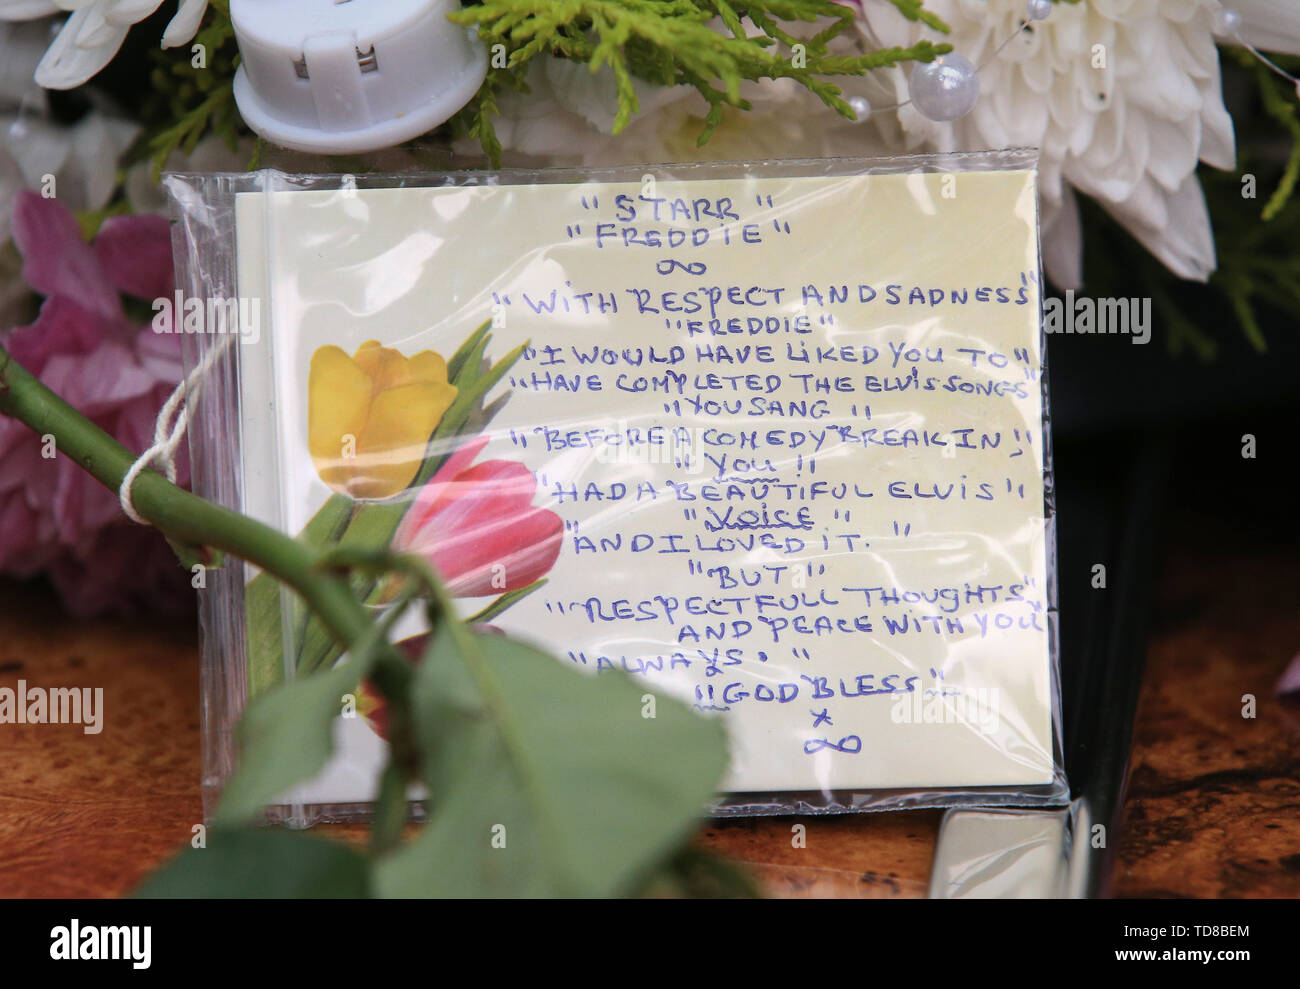 "STARR"
"FREDDIE"
"WITH RESPECT AND SADNESS"
"FREDDIE"
"I WOULD HAVE LIKED YOU TO"
"HAVE COMPLETED THE ELVIS SONGS"
"YOU SANG"
"BEFORE A COMEDY BREAK IN,"
"YOU"
"HAD A BEAUTIFUL ELVIS"
"VOICE"
"AND I LOVED IT."
"BUT"
"RESPECTFULL THOUGHTS"
AND PEACE WITH YOU
"ALWAYS."
"GOD BLESS"
x
a alamy
alamy
Image ID: TD8BEM
www.alamy.com